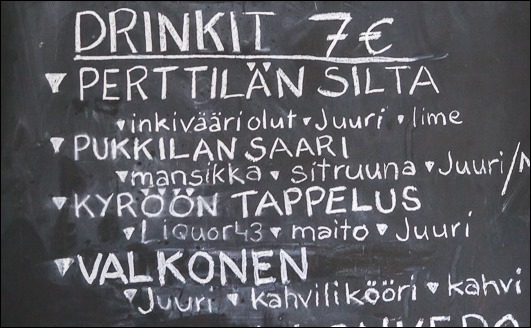 DRINKIT 7€
▾ PERTTILÄN SILTA
▾inkivääriolut ▾ Juuri ▾ lime
▾ PUKKILAN SAARI
▾mansikka ▾ sitruuna ▾ Juuri/
▾ KYRÖÖN TAPPELUS
▾Liquor43 ▾ maito ▾ Juuri
▾ VALKONEN
▾Juuri ▾ kahvilikööri ▾ kahvi